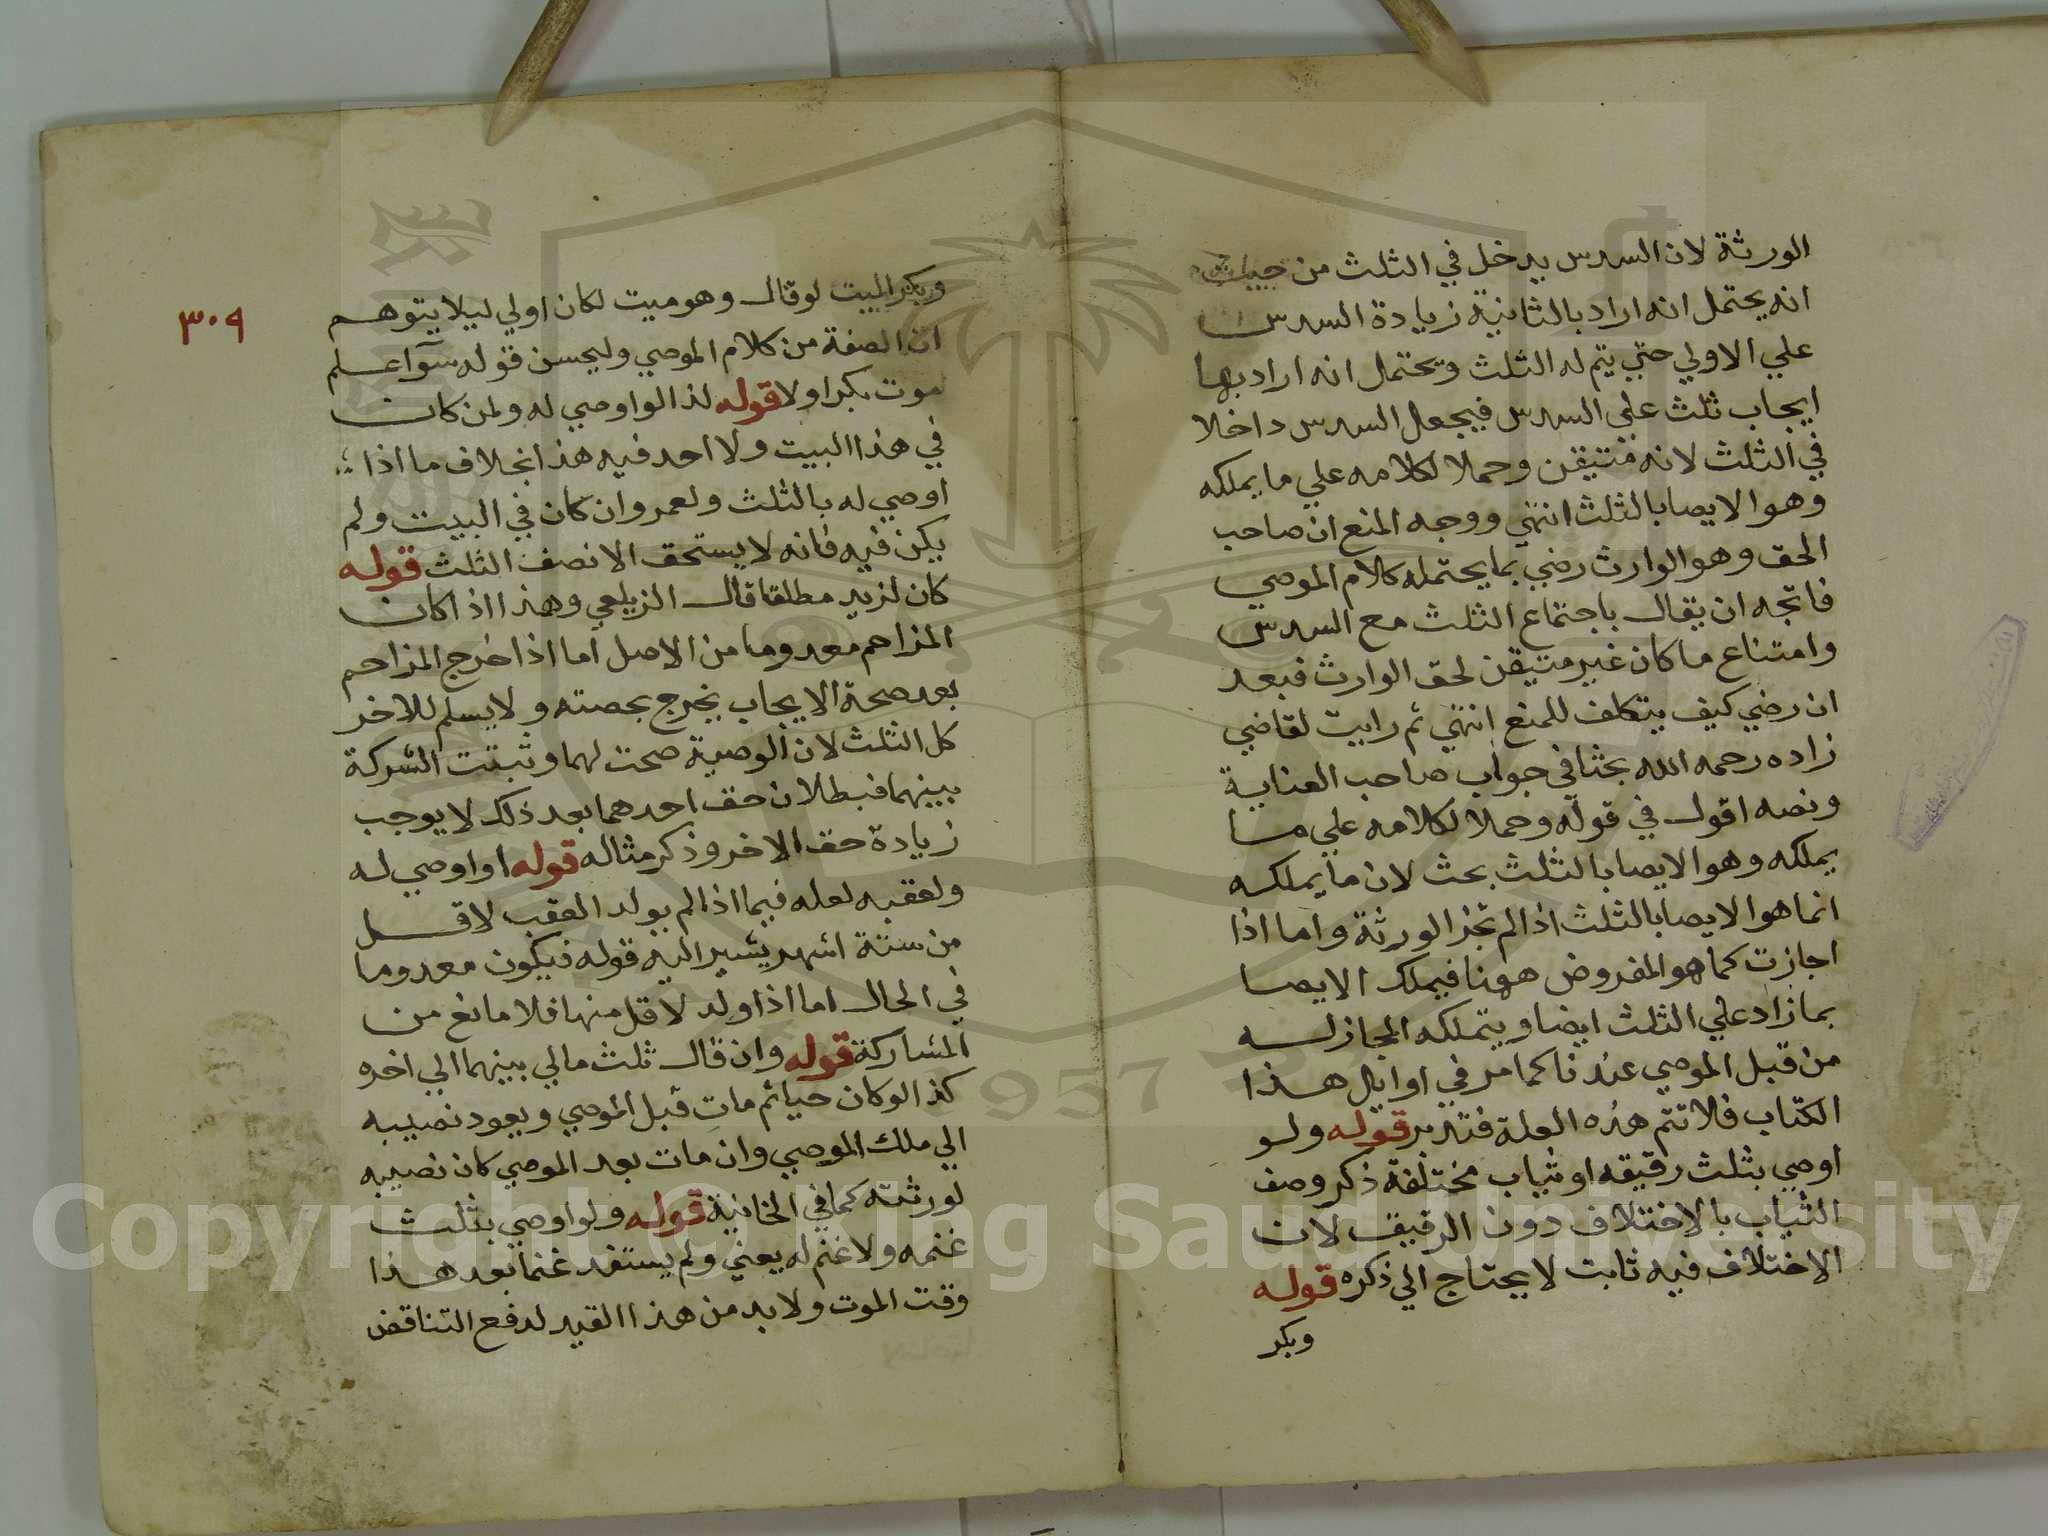 الورثة لان السدس يدخل في الثلث من حيث
انه يحتمل انه اراد بالثانية زيادة السدس
علي الاولي حتي يتم له الثلث ويحتمل انه اراد بها
ايجاب ثلث علي السدس فيجعل السدس داخلا
في الثلث لانه متيقن وحملا لكلامه علي ما يملكه
وهو الايصا بالثلث انتهي ووجه المنع ان صاحب
الحق وهو الوارث رضي بما يحتمله كلام الموصي
فاتجه ان يقال باجتماع الثلث مع السدس
وامتناع ما كان غير متيقن لحق الوارث فبعد
ان رضي كيف يتكلف للمنع انتهي ثم رايت لقاضي
زاده رحمه الله بحثا في جواب صاحب العناية
ونصه اقول في قوله وحملا لكلامه علي ما
يملكه وهو الايصا بالثلث بحث لان ما يملكه
انما هو الايصا بالثلث اذا لم تجز الورثة واما اذا
اجازت كما هو المفروض ههنا فيملك الايصا
بما زاد علي الثلث ايضا ويتملكه المجاز له
من قبل الموصي عندنا كما مر في اوايل هذا
الكتاب فلا تتم هذه العلة فتدبر قوله ولو
اوصي بثلث رقيقه او ثياب مختلفة ذكر وصف
الثياب بالاختلاف دون الرقيق لان
الاختلاف فيه ثابت لا يحتاج الي ذكره قوله
وبكر
٣٠٩
وبكر الميت لو قال وهو ميت لكان اولي ليلا يتوهم
ان الصفة من كلام الموصي وليحسن قوله سوآ علم
موت بكر اولا قوله لذا لو اوصي له ولمن كان
في هذا البيت ولا احد فيه هذا بخلاف ما اذا
اوصي له بالثلث ولعمرو ان كان في البيت ولم
يكن فيه فانه لا يستحق الا نصف الثلث قوله
كان لزيد مطلقا قال الزيلعي وهذا اذا كان
المزاحم معدوما من الاصل اما اذا خرج المزاحم
بعد صحة الايجاب يخرج بحصته ولا يسلم للاخر
كل الثلث لان الوصية صحت لهما وثبتت الشركة
بينهما فبطلان حق احدهما بعد ذلك لا يوجب
زيادة حق الاخر وذكر مثاله قوله او اوصي له
ولعقبه لعله فيما اذا لم يولد العقب لاقل
من ستة اشهر يشير اليه قوله فيكون معدوما
في الحال اما اذا ولد لاقل منها فلا مانع من
المشاركة قوله وان قال ثلث مالي بينهما الي اخره
كذا لو كان حيا ثم مات قبل الموصي ويعود نصيبه
الي ملك الموصي وان مات بعد الموصي كان نصيبه
لورثته كما في الخانية قوله ولو اوصي بثلث
غنمه ولا غنم له يعني ولم يستفد غنما بعد هذا
وقت الموت ولا بد من هذا القيد لدفع التناقض
1957
Copyright © King Saud University